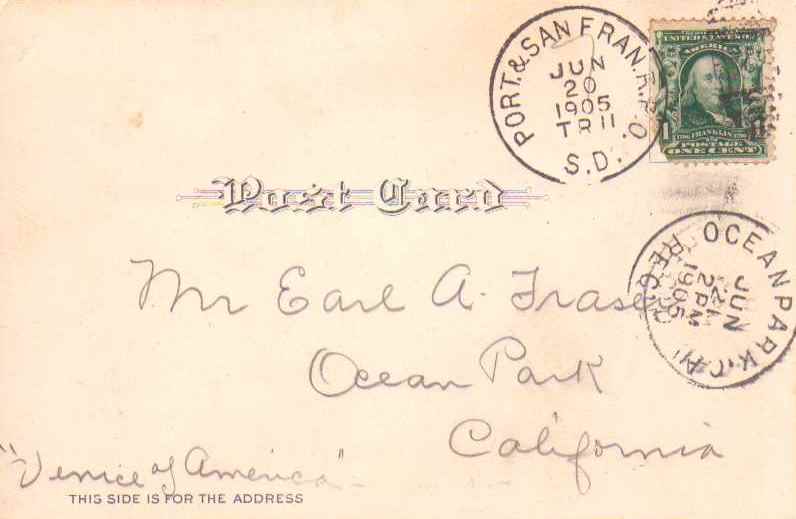 PORT. & SAN FRAN. R.P.O.
JUN
20
1905
TR 11
S.D.
UNITED STATES OF
AMERICA
1
FRANKLIN
POSTAGE
ONE CENT
Post Card
OCEAN PARK, CAL
REC'D
JUN
21
2 PM
1905
Mr Earl A. Fraser
Ocean Park
California
"Venice of America"
THIS SIDE IS FOR THE ADDRESS